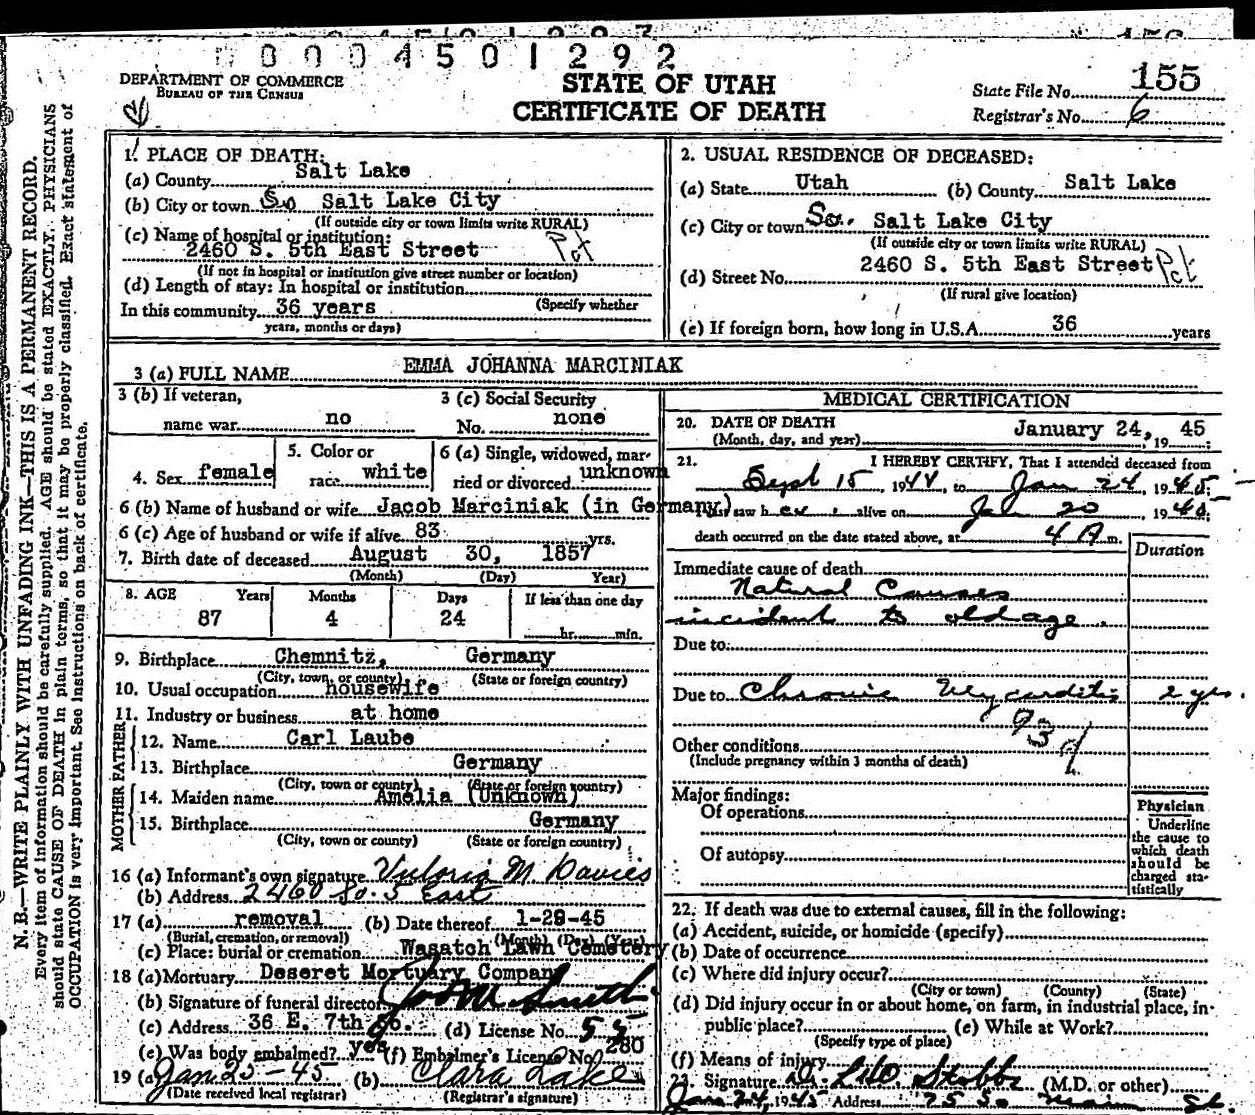 0 0 0 4 5 0 1 2 9 2
DEPARTMENT OF COMMERCE
BUREAU OF THE CENSUS
STATE OF UTAH
CERTIFICATE OF DEATH
State File No. 155
Registrar's No. 6
N. B.—WRITE PLAINLY WITH UNFADING INK—THIS IS A PERMANENT RECORD.
Every item of information should be carefully supplied. AGE should be stated EXACTLY. PHYSICIANS
should state CAUSE OF DEATH in plain terms, so that it may be properly classified. Exact statement of
OCCUPATION is very important. See instructions on back of certificate.
1. PLACE OF DEATH:
(a) County Salt Lake
(b) City or town So Salt Lake City
(If outside city or town limits write RURAL)
(c) Name of hospital or institution:
2460 S. 5th East Street Pct
(If not in hospital or institution give street number or location)
(d) Length of stay: In hospital or institution
In this community 36 years (Specify whether
years, months or days)
2. USUAL RESIDENCE OF DECEASED:
(a) State Utah (b) County Salt Lake
(c) City or town So. Salt Lake City
(If outside city or town limits write RURAL)
(d) Street No. 2460 S. 5th East Street Pct
(If rural give location)
(e) If foreign born, how long in U.S.A. 36 years
3 (a) FULL NAME EMMA JOHANNA MARCINIAK
3 (b) If veteran,
name war no
3 (c) Social Security
No. none
4. Sex female
5. Color or
race white
6 (a) Single, widowed, mar-
ried or divorced unknown
6 (b) Name of husband or wife Jacob Marciniak (in Germany)
6 (c) Age of husband or wife if alive 83 yrs.
7. Birth date of deceased August 30, 1857
(Month) (Day) Year)
8. AGE Years Months Days If less than one day
87 4 24 hr. min.
9. Birthplace Chemnitz, Germany
(City, town, or county) (State or foreign country)
10. Usual occupation housewife
11. Industry or business at home
FATHER
12. Name Carl Laube
13. Birthplace Germany
(City, town, or county) (State or foreign country)
MOTHER
14. Maiden name Amelia (Unknown)
15. Birthplace Germany
(City, town, or county) (State or foreign country)
16 (a) Informant's own signature Victoria M Davies
(b) Address 2460 So. 5 East
17 (a) removal (b) Date thereof 1-29-45
(Burial, cremation, or removal) (Month) (Day) (Year)
(c) Place: burial or cremation Wasatch Lawn Cemetery
18 (a) Mortuary Deseret Mortuary Company
(b) Signature of funeral director Smith
(c) Address 36 E. 7th So. (d) License No. 55
(e) Was body embalmed? yes (f) Embalmer's License No. 280
19 (a) Jan 25-45 (b) Clara Lake
(Date received local registrar) (Registrar's signature)
MEDICAL CERTIFICATION
20. DATE OF DEATH
(Month, day, and year) January 24, 19 45
21. I HEREBY CERTIFY, That I attended deceased from
Sept 15, 1944, to Jan 24 1945;
last saw her alive on Jan 20 1945;
death occurred on the date stated above, at 4 A m.
Duration
Immediate cause of death
Natural Causes
incident to old age.
Due to:
Due to Chronic Myocarditis 2 yrs.
93d
Other conditions
(Include pregnancy within 3 months of death)
Major findings:
Of operations
Of autopsy
Physician
Underline
the cause to
which death
should be
charged sta-
tistically
22. If death was due to external causes, fill in the following:
(a) Accident, suicide, or homicide (specify)
(b) Date of occurrence
(c) Where did injury occur?
(City or town) (County) (State)
(d) Did injury occur in or about home, on farm, in industrial place, in
public place? (e) While at Work?
(Specify type of place)
(f) Means of injury
23. Signature Stobbe (M.D. or other)
Jan 24, 1945 Address 75 So Main St.